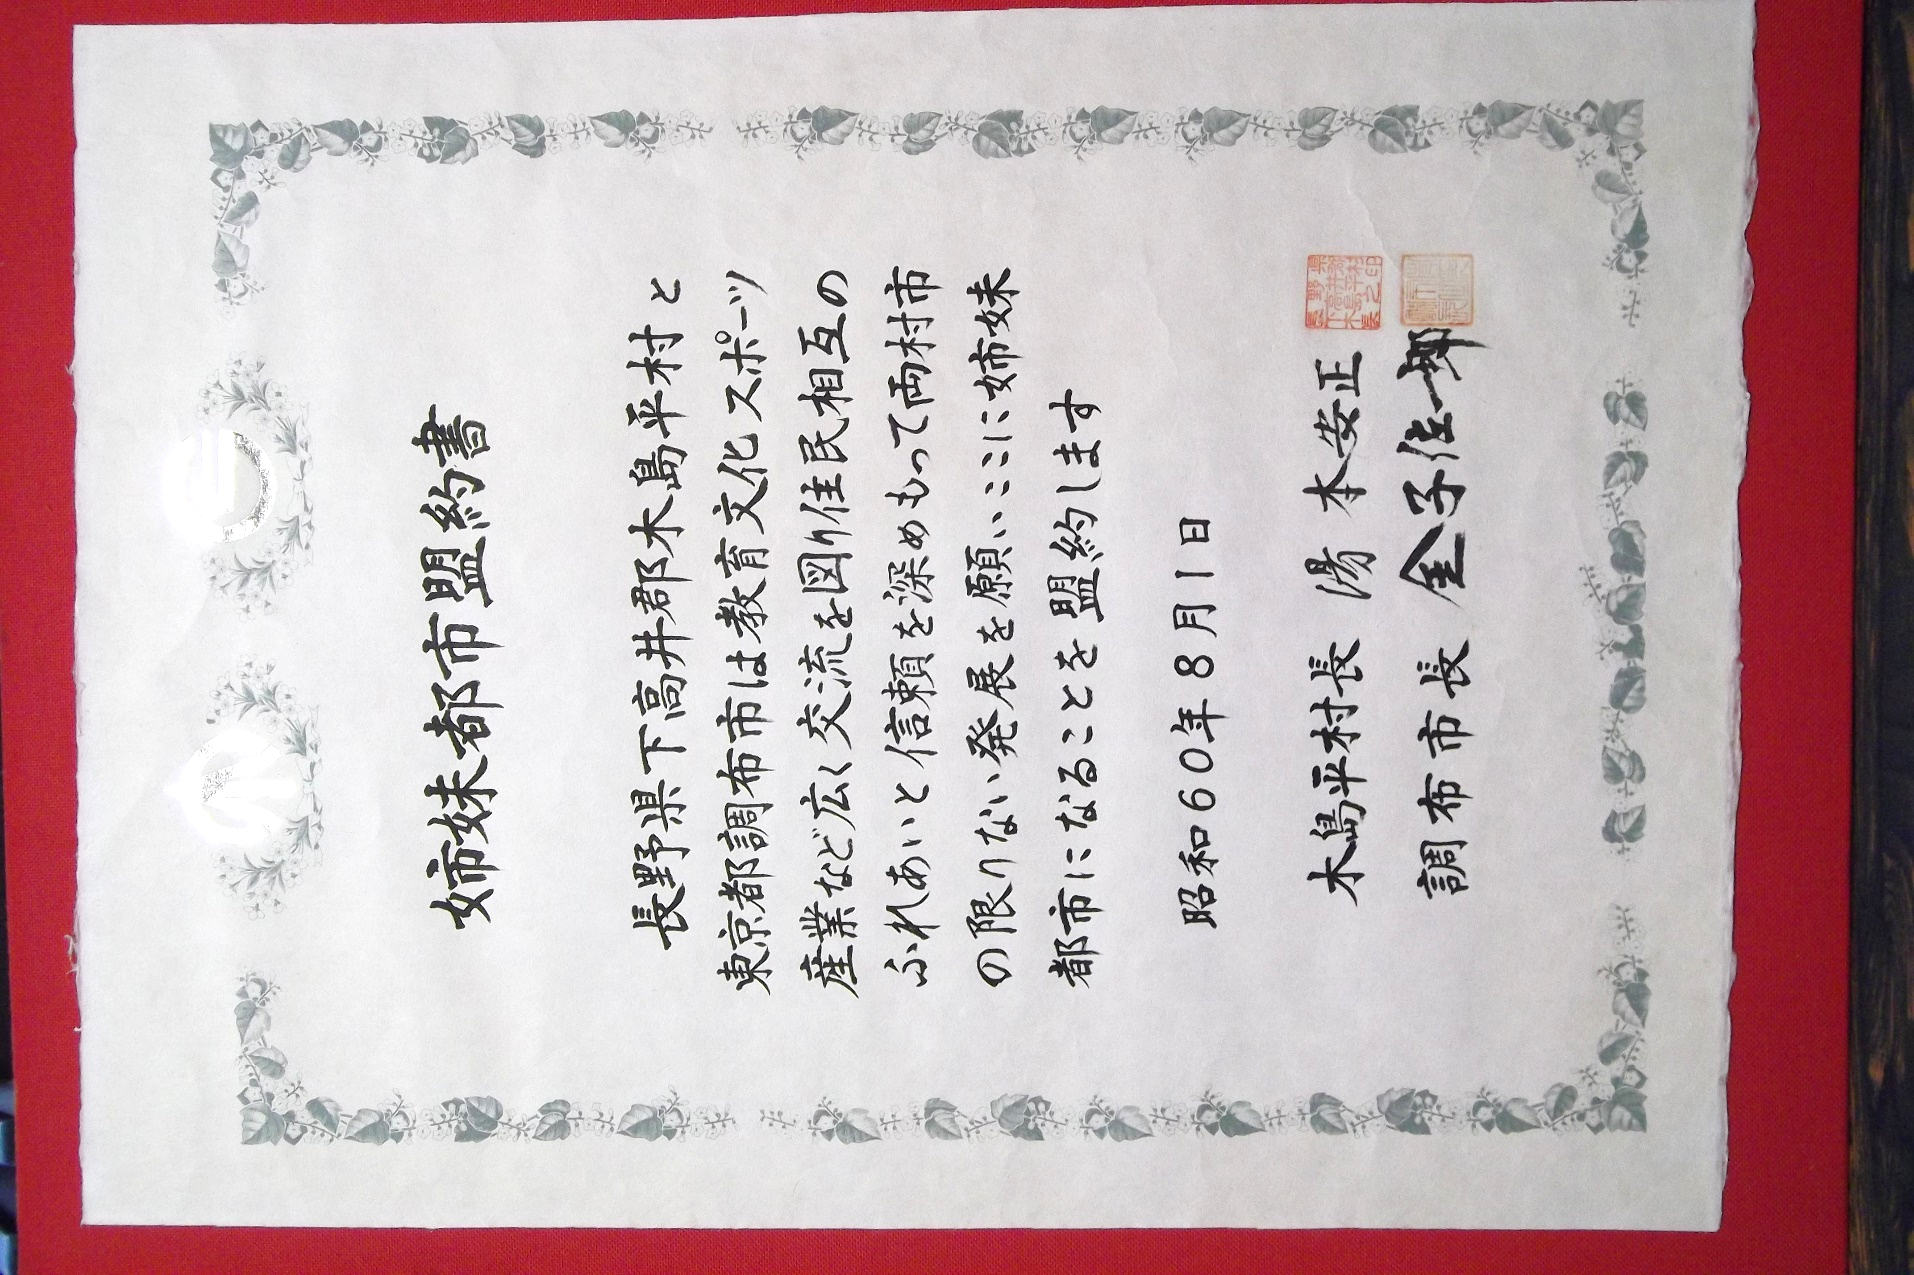 姉妹都市盟約書
長野県下高井郡木島平村と
東京都調布市は教育文化スポーツ
産業など広く交流を図り住民相互の
ふれあいと信頼を深めもって両村市
の限りない発展を願いここに姉妹
都市になることを盟約します
昭和60年8月1日
木島平村長 湯本安正
調布市長 金子佐一郎
長野県
下高井郡
木島平村
長之印